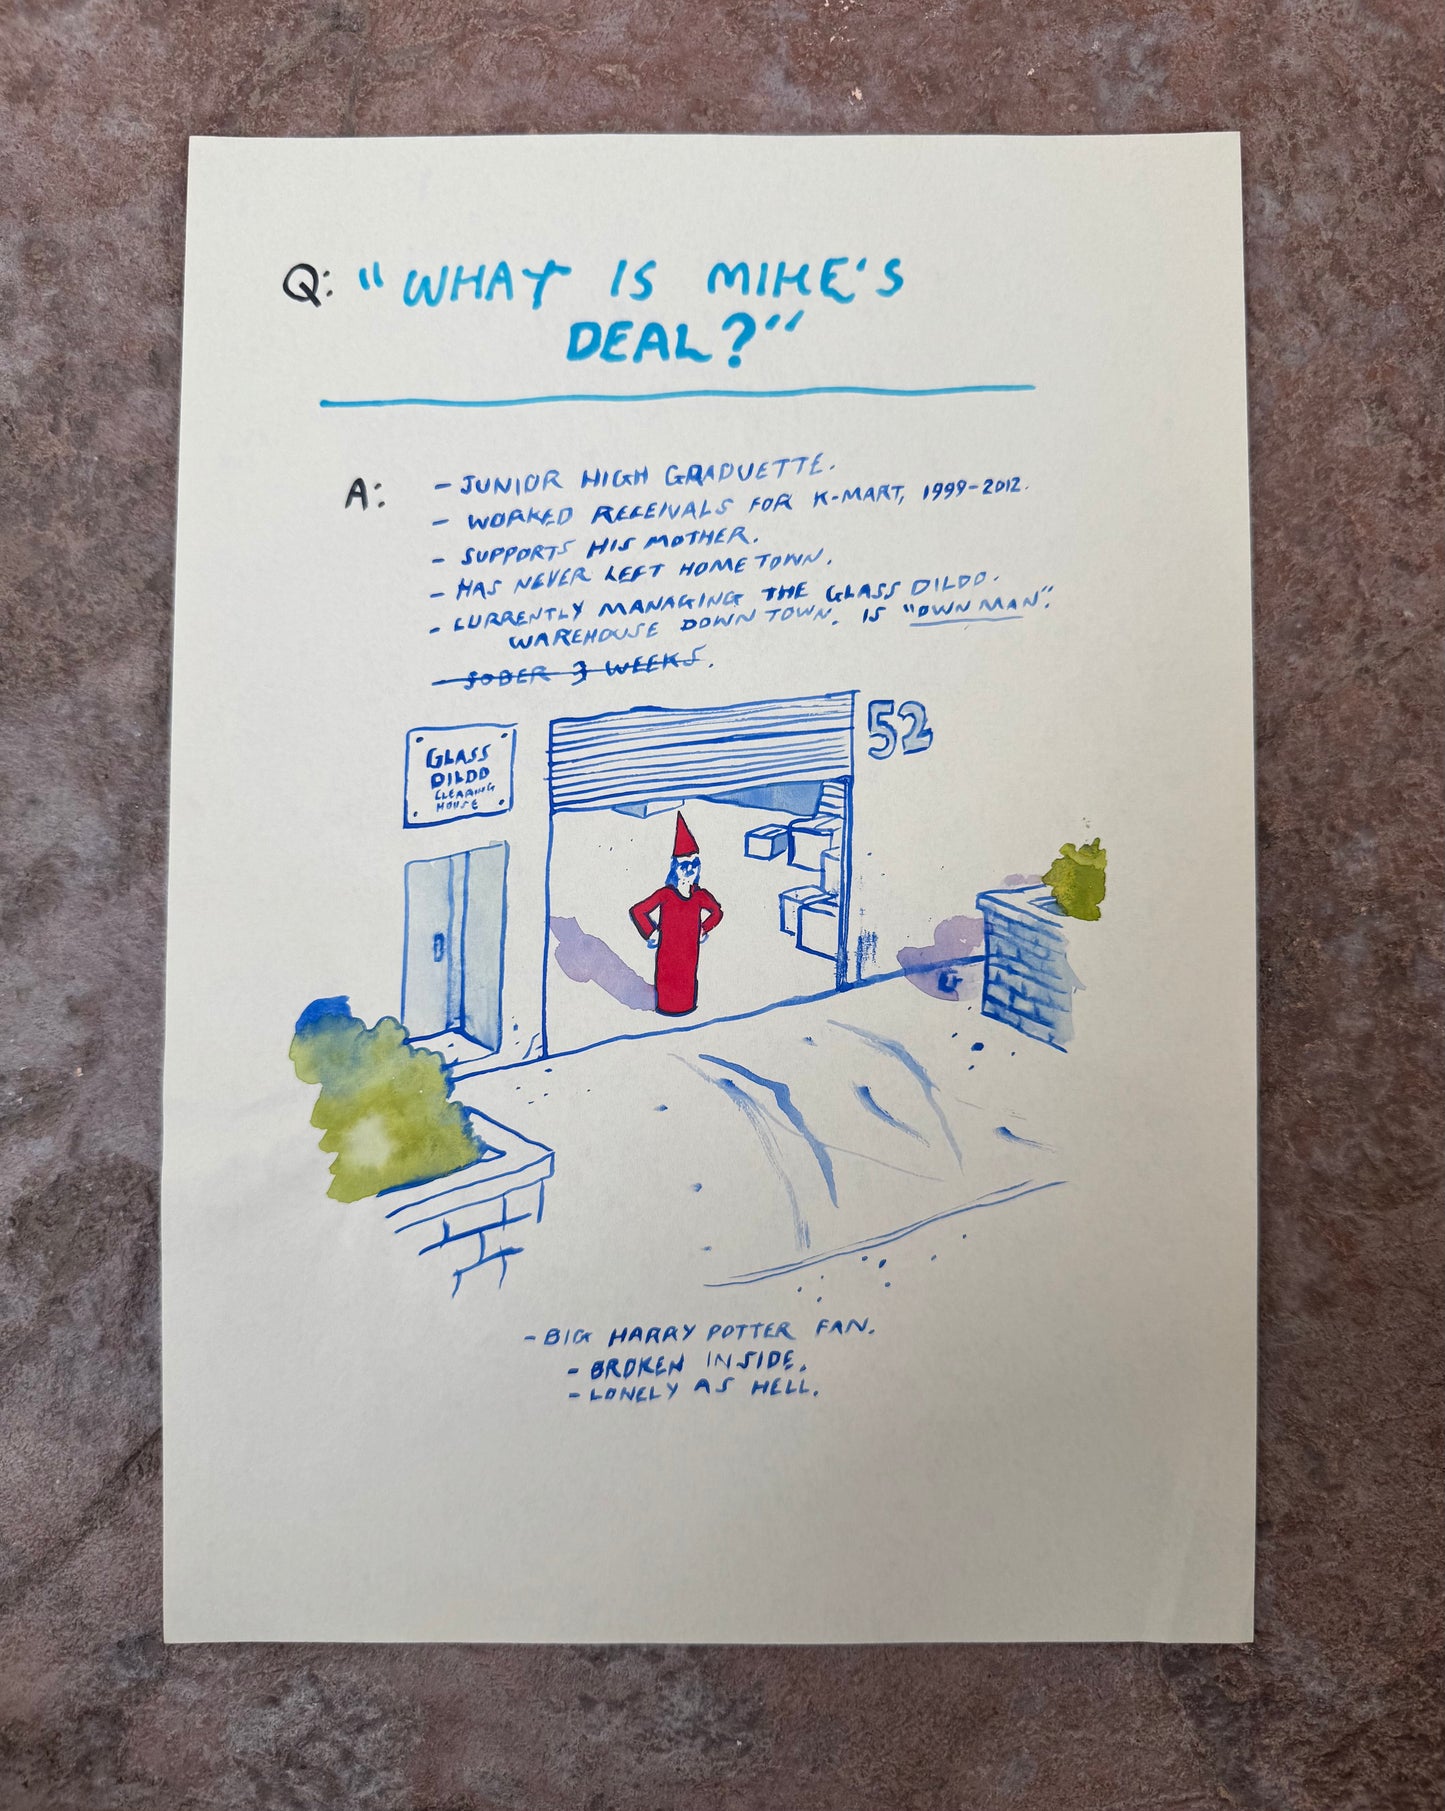 Q: "WHAT IS MIKE'S
DEAL?"
A: - JUNIOR HIGH GRADUETTE.
- WORKED RECEIVALS FOR K-MART, 1999-2012.
- SUPPORTS HIS MOTHER.
- HAS NEVER LEFT HOME TOWN.
- CURRENTLY MANAGING THE GLASS DILDO.
WAREHOUSE DOWN TOWN. IS "OWN MAN".
- SOBER 3 WEEKS.
52
GLASS
DILDO
CLEARING
HOUSE
- BIG HARRY POTTER FAN.
- BROKEN INSIDE.
- LONELY AS HELL.